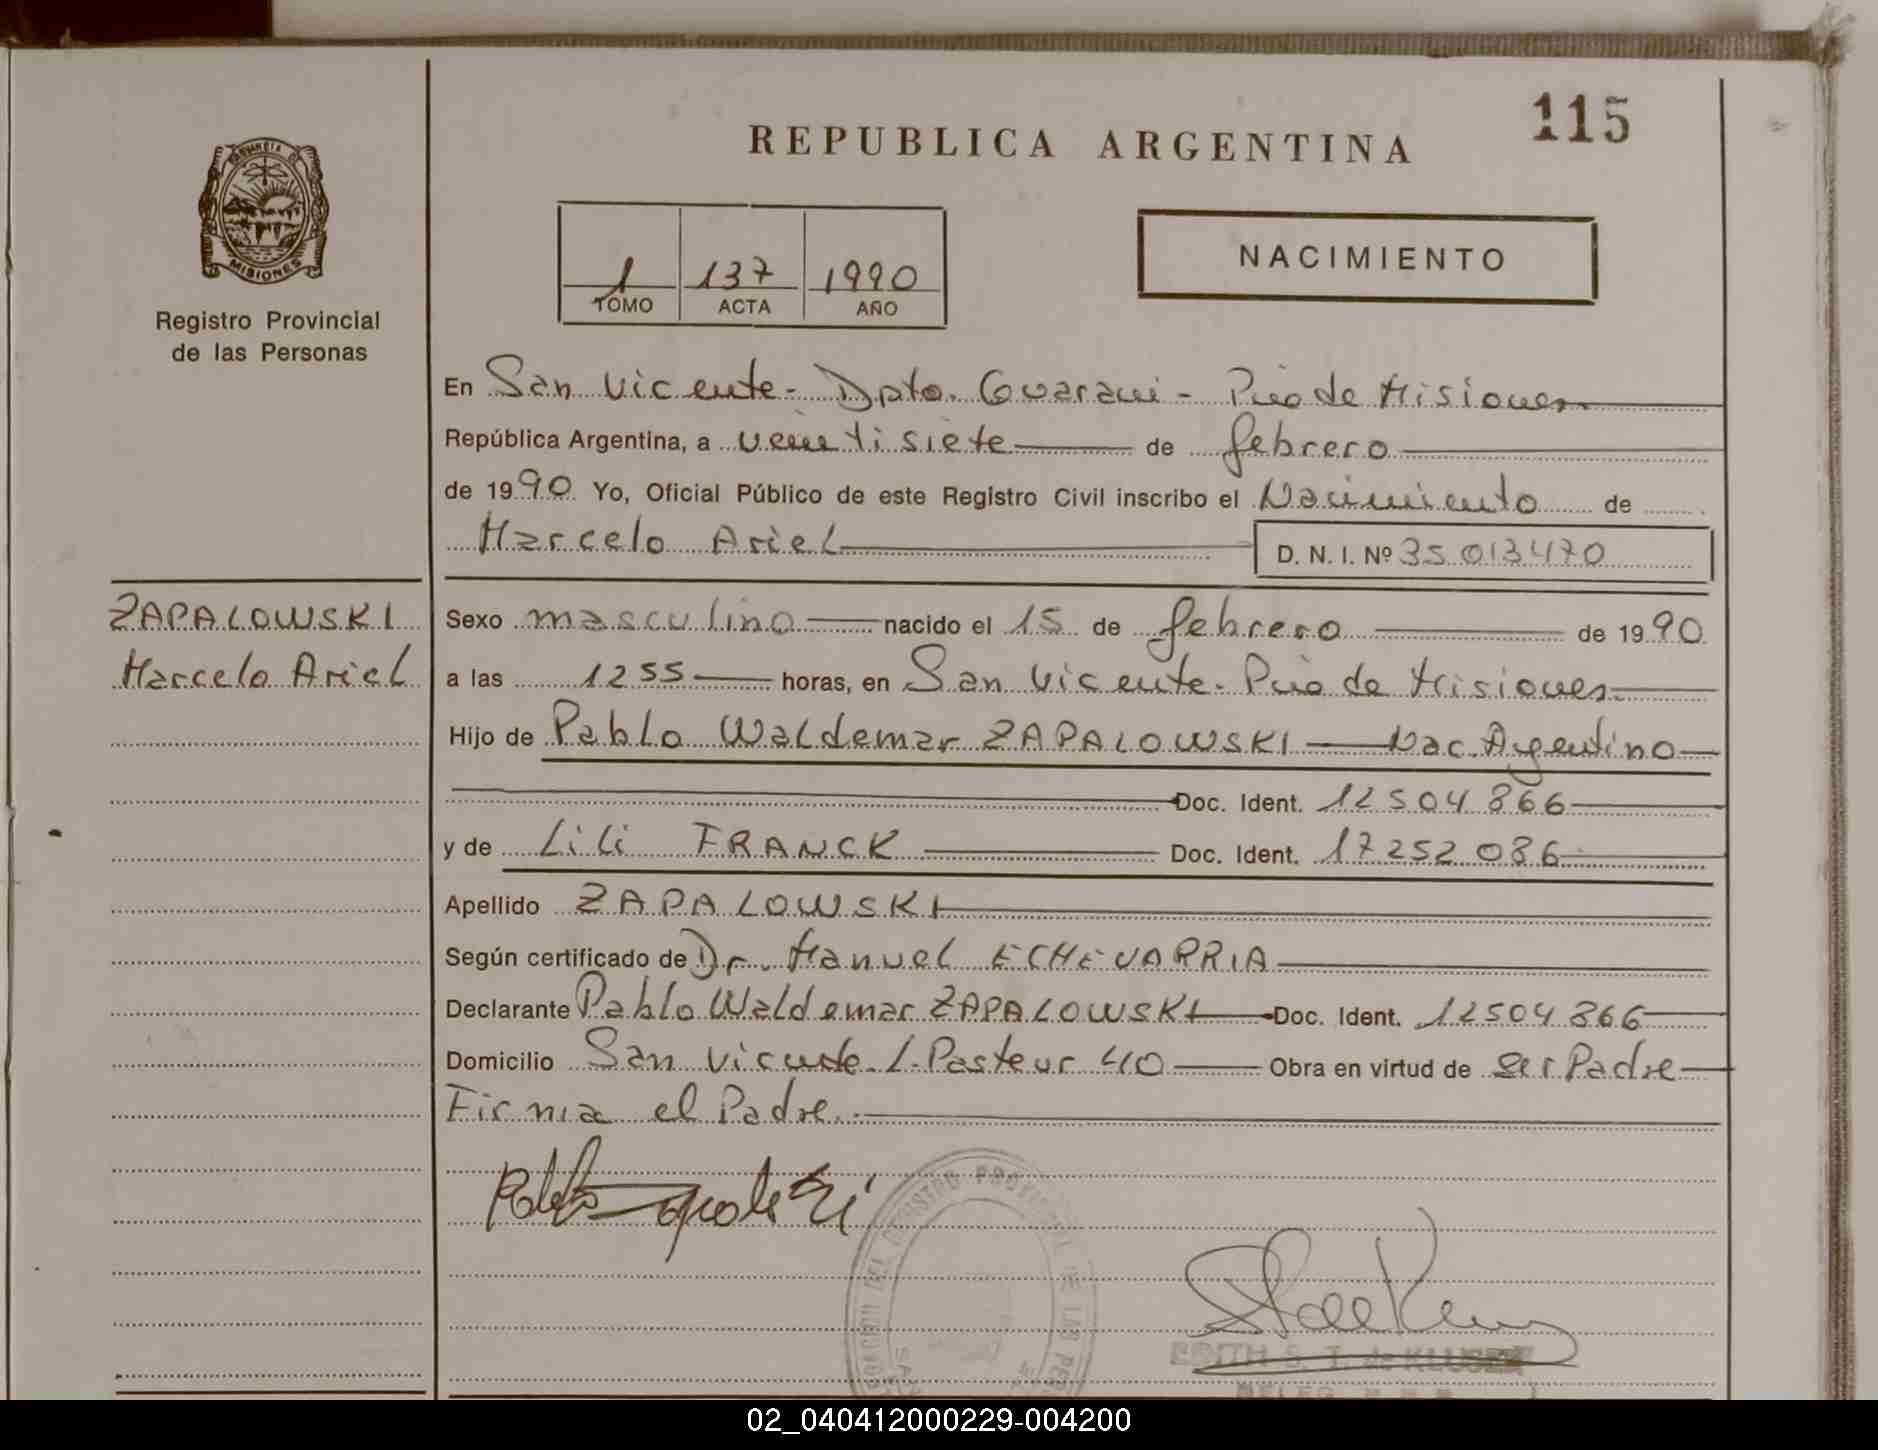 115
REPUBLICA ARGENTINA
PROVINCIA DE
MISIONES
Registro Provincial
de las Personas
1 137 1990
TOMO ACTA AÑO
NACIMIENTO
En San Vicente - Dpto. Guarani - Pcia de Misiones.
República Argentina, a veintisiete de febrero
de 1990. Yo, Oficial Público de este Registro Civil inscribo el Nacimiento de
Marcelo Ariel D. N. I. Nº 35.013.470
ZAPALOWSKI
Marcelo Ariel
Sexo masculino nacido el 15 de febrero de 1990
a las 1255 horas, en San Vicente. Pcia de Misiones.
Hijo de Pablo Waldemar ZAPALOWSKI Nac. Argentino
Doc. Ident. 12504866
y de Lili FRANCK Doc. Ident. 17252086
Apellido ZAPALOWSKI
Según certificado de Dr. Manuel ECHEVARRIA
Declarante Pablo Waldemar ZAPALOWSKI Doc. Ident. 12504866
Domicilio San Vicente. L. Pasteur 410 Obra en virtud de ser Padre
Firma el Padre.
REGISTRO PROVINCIAL DE LAS
EDITH S. T. de KLUSEN
02_040412000229-004200